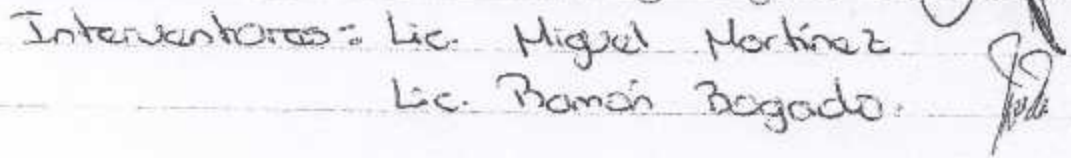 Interventores: Lic. Miguel Martínez
Lic. Ramón Bogado.